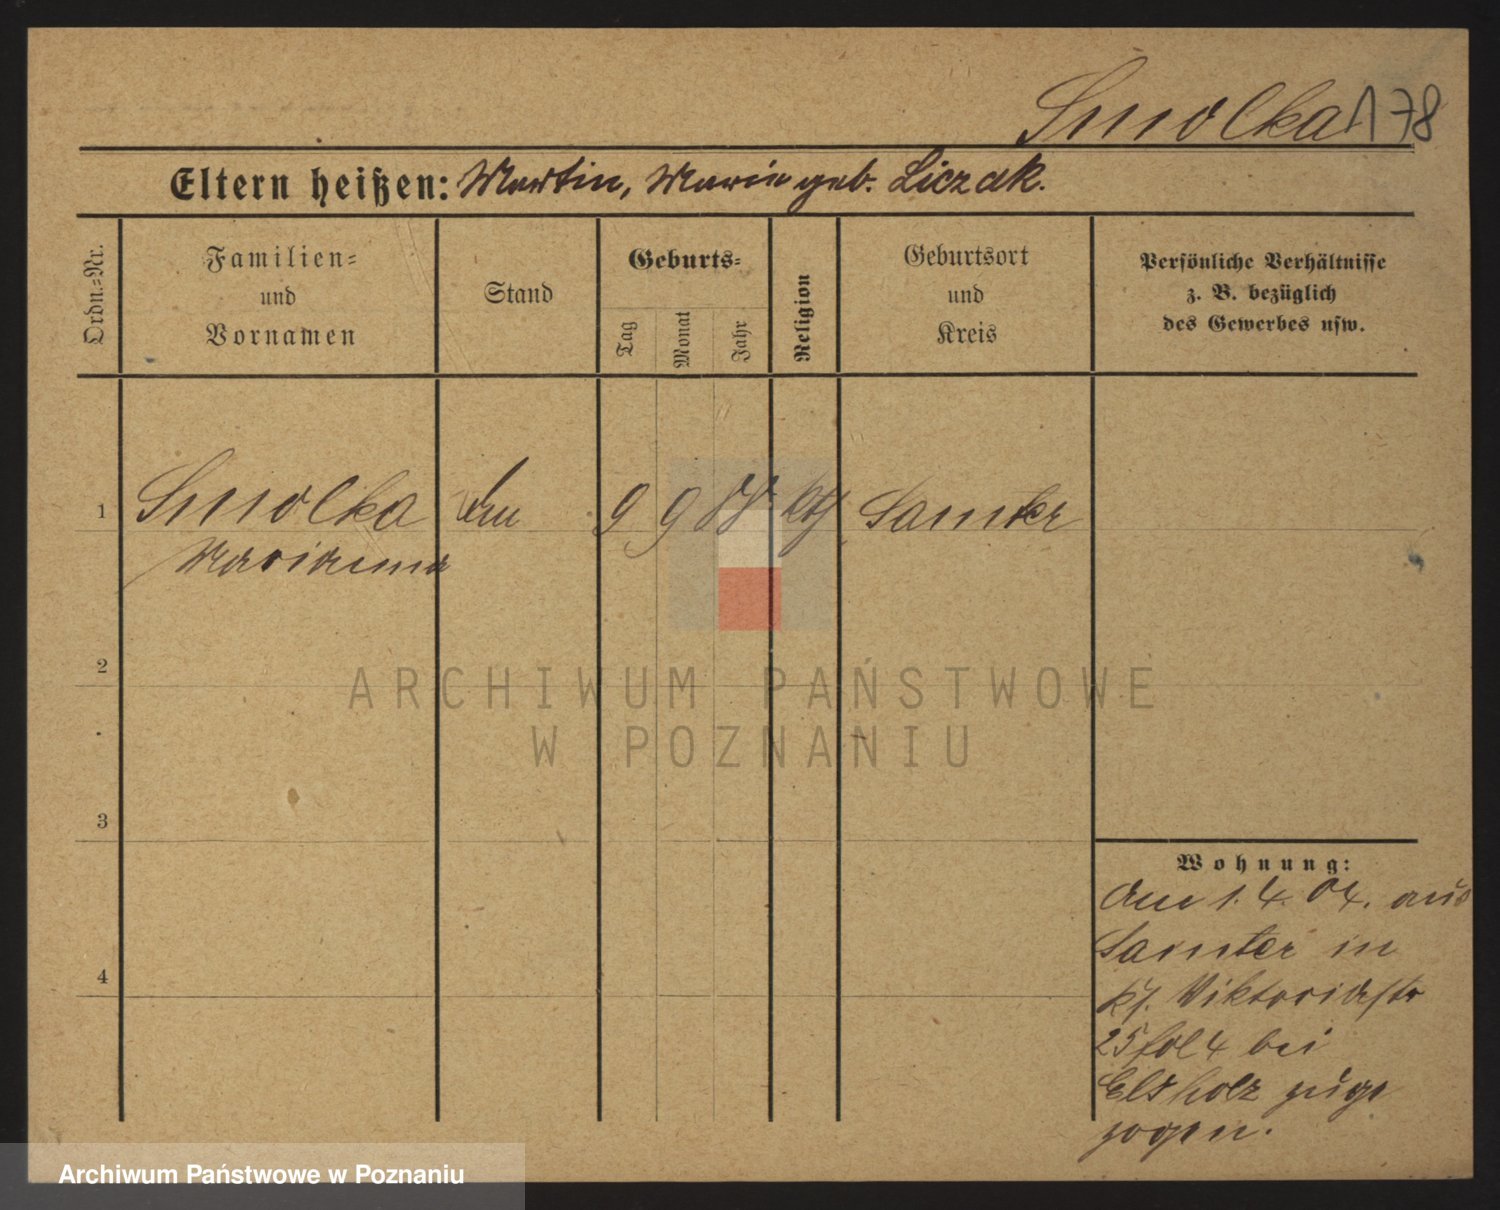 Smolka 178
Eltern heißen: Martin, Marie geb. Liczak.
Ordn.=Nr.
Familien=
und
Vornamen
Stand
Geburts=
Tag
Monat
Jahr
Religion
Geburtsort
und
Kreis
Persönliche Verhältnisse
z. B. bezüglich
des Gewerbes usw.
1 Smolka 9 9 kth Samter
Marianna
2
ARCHIWUM PAŃSTWOWE
W POZNANIU
3
Wohnung:
am 1. 4. 04. aus
Samter in
Viktoriastr
25 fol 4 bei
Elsholz zuge
zogen.
4
Archiwum Państwowe w Poznaniu